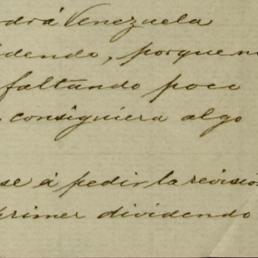 drá Venezuela
idendo, porque n
faltando poco
consiguiera algo
se á pedir la revisión
primer dividendo